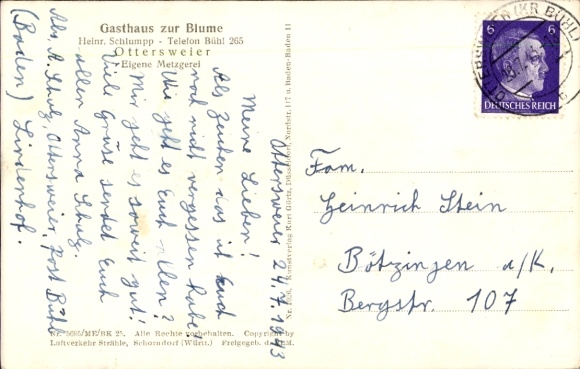 Gasthaus zur Blume
Heinr. Schlumpp - Telefon Bühl 265
Ottersweier
Eigene Metzgerei
Ottersweier 24.7.1943
Meine Lieben!
Als Zeichen das ich Euch
noch nicht vergessen habe!
Wie geht es Euch allen?
Mir geht es soweit gut!
Viele Grüse sendet Euch
allen Anna Schulz.
Abs. A. Schulz, Ottersweier, Post Bühl
(Baden) Lindenhof.
Nr. 5695/ME/BK 25. Alle Rechte vorbehalten. Copyright by
Luftverkehr Strähle, Schorndorf (Württ.) Freigegeb. d. RLM.
Kunstverlag Kurt Görtz, Düsseldorf, Nordstr. 117 u. Baden-Baden 11
6 6
DEUTSCHES REICH
OTTERSWEIER (KR BÜHL)
Fam.
Heinrich Stein
Bötzingen a/K.
Bergstr. 107